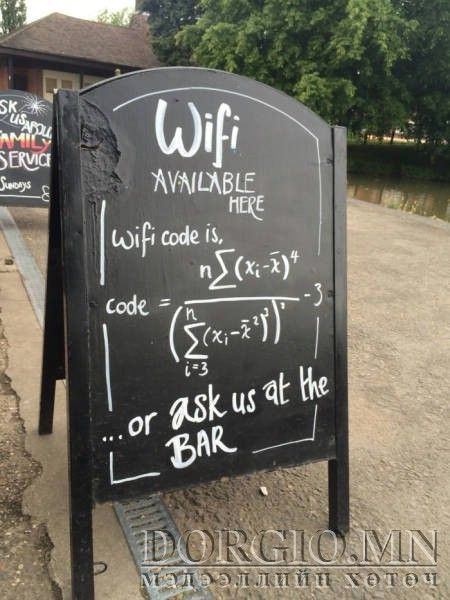 SK
US ABOU
FAMILY
SERVICE
SUNDAYS
Wifi
AVAILABLE
HERE
Wifi code is,
code = n∑(xᵢ-x̄)⁴ / (∑ⁿᵢ₌₃(xᵢ-x̄²)²)² - 3
...or ask us at the
BAR
DORGIO.MN
МЭДЭЭЛЛИЙН ХӨТӨЧ